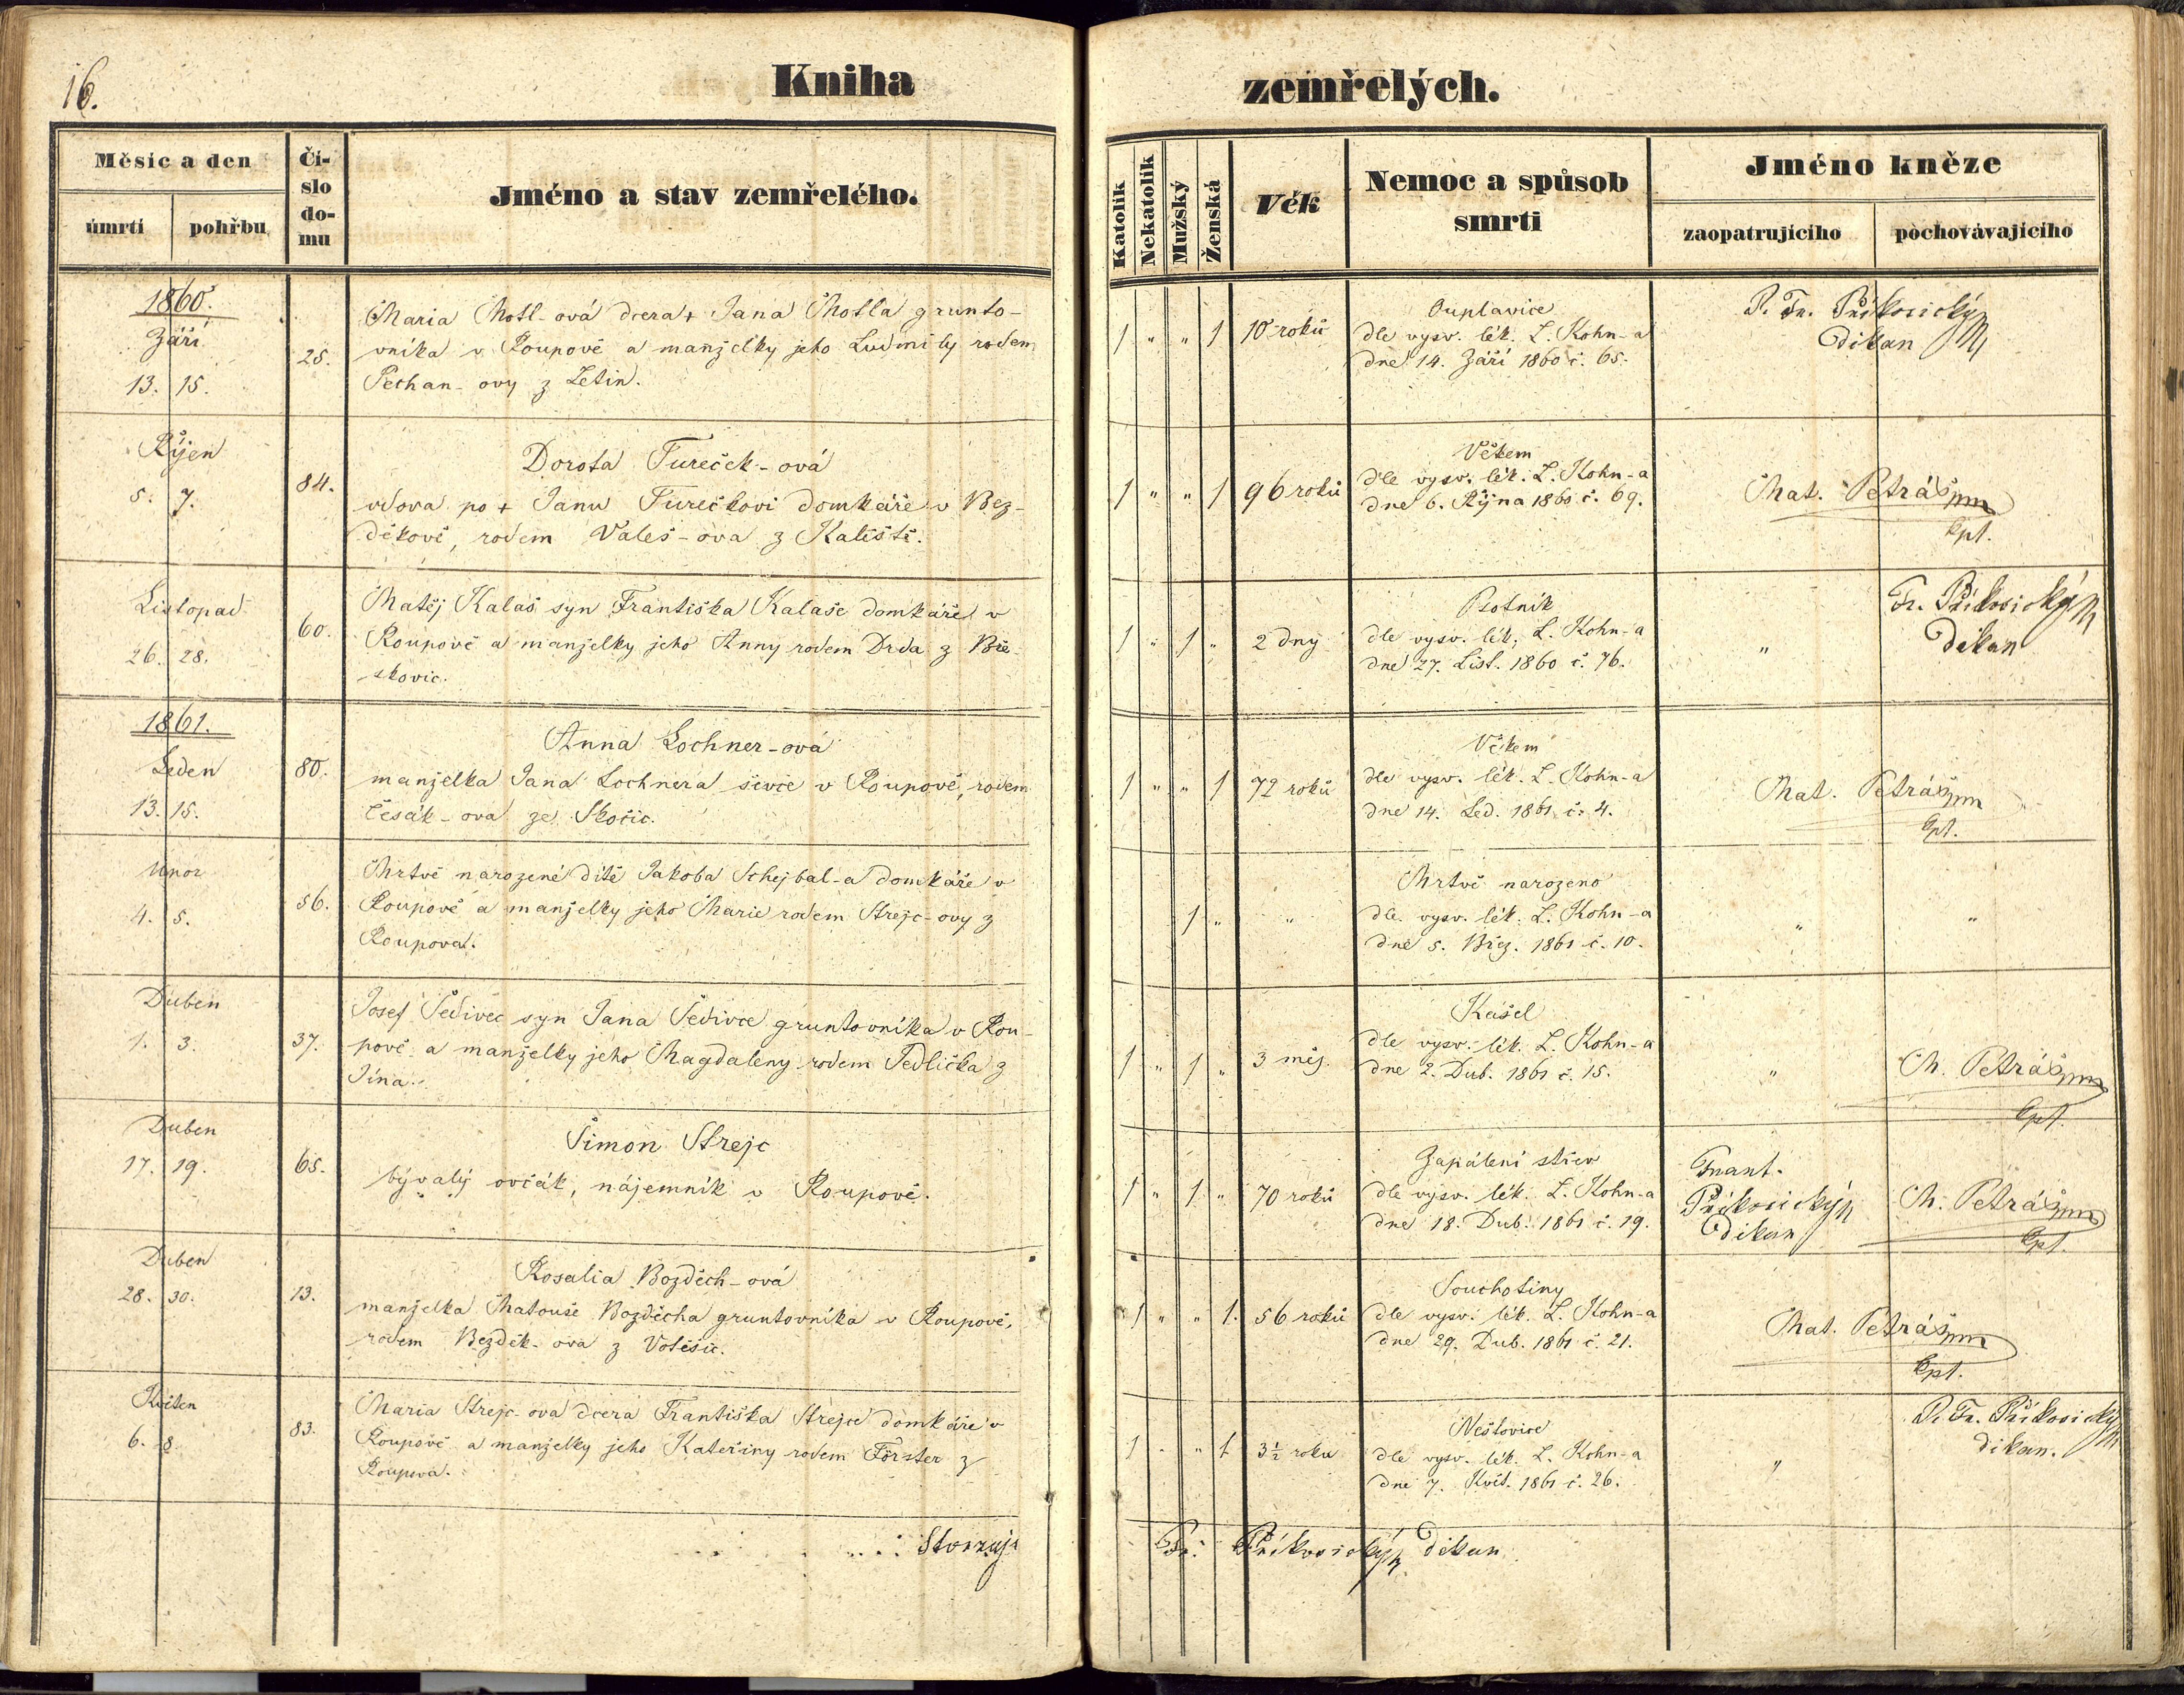 16.
Kniha zemřelých.
Měsíc a den
úmrtí
pohřbu
Čí-
slo
do-
mu
Jméno a stav zemřelého.
Katolík
Nekatolík
Mužský
Ženská
Věk
Nemoc a spůsob
smrti
Jméno kněze
zaopatrujícího
pochovávajícího
1860.
Září
13. 15.
25.
Maria Motl-ová dcera + Jana Motla grunto-
vníka v Roupově a manželky jeho Ludmily rodem
Pechan-ovy z Letin.
1 " " 1
10 roků
Ouplavice
dle vysv. lék. L. Kohn-a
dne 14. Září 1860 č. 65.
P. Fr. Příkosický
děkan
Říjen
5. 7.
84.
Dorota Tureček-ová
vdova po + Janu Turečkovi domkáře v Bez-
děkově, rodem Valeš-ova z Kaliště.
1 " " 1
96 roků
Věkem
dle vysv. lék. L. Kohn-a
dne 6. Října 1860 č. 69.
Mat. Petráš
kpl.
Listopad
26. 28.
60.
Matěj Kalaš syn Františka Kalaše domkáře v
Roupově a manželky jeho Anny rodem Drda z Bře-
skovic.
1 " 1 "
2 dny
Psotník
dle vysv. lék. L. Kohn-a
dne 27. List. 1860 č. 76.
"
Fr. Příkosický
děkan
1861.
Leden
13. 15.
80.
Anna Lochner-ová
manželka Jana Lochnera ševce v Roupově, rodem
Česák-ova ze Skočic.
1 " " 1
72 roků
Věkem
dle vysv. lék. L. Kohn-a
dne 14. Led. 1861 č. 4.
Mat. Petráš
kpl.
Unor
4. 5.
56.
Mrtvě narozené dítě Jakoba Schejbal-a domkáře v
Roupově a manželky jeho Marie rodem Strejc-ovy z
Roupova.
1 "
"
Mrtvě narozeno
dle vysv. lék. L. Kohn-a
dne 5. Břez. 1861 č. 10.
" "
Duben
1. 3.
37.
Josef Šedivec syn Jana Šedivce gruntovníka v Rou-
pově a manželky jeho Magdaleny rodem Jedlička z
Jína.
1 " 1 "
3 měs.
Kašel
dle vysv. lék. L. Kohn-a
dne 2. Dub. 1861 č. 15.
"
M. Petráš
kpl.
Duben
17. 19.
65.
Šimon Strejc
bývalý ovčák, nájemník v Roupově.
1 " 1 "
70 roků
Zapálení střev
dle vysv. lék. L. Kohn-a
dne 18. Dub. 1861 č. 19.
Frant.
Příkosický
děkan
M. Petráš
kpl.
Duben
28. 30.
13.
Rosalia Bozděch-ová
manželka Matouše Bozděcha gruntovníka v Roupově,
rodem Bezděk-ova z Votěšic.
1 " " 1.
56 roků
Souchotiny
dle vysv. lék. L. Kohn-a
dne 29. Dub. 1861 č. 21.
Mat. Petráš
kpl.
Květen
6. 8.
83.
Maria Strejc-ova dcera Františka Strejce domkáře v
Roupově a manželky jeho Kateřiny rodem Förster z
Roupova.
1 " " 1
3½ roku
Neštovice
dle vysv. lék. L. Kohn-a
dne 7. Květ. 1861 č. 26.
"
P. Fr. Příkosický
děkan.
Stvrzuje
Fr. Příkosický děkan